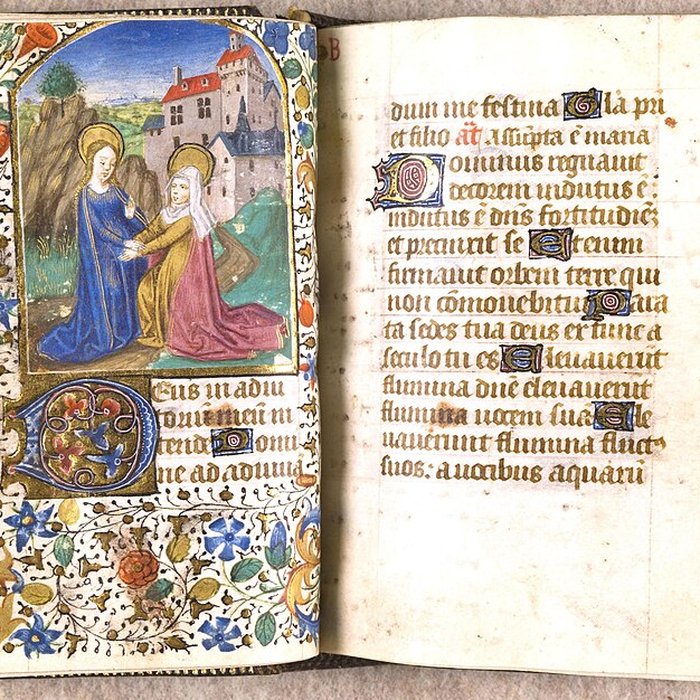 Deus in adiu
torium meū in
tende Domi
ne ad adiuua
B
dum me festina Gla pri
et filio añ Assūpta ē maria
Dominus regnauit
decorem indutus ē:
indutus ē dn̄s fortitudinē
et precinxit se Etenim
firmauit orbem terre qui
non cōmouebitur Para
ta sedes tua deus ex tunc a
seculo tu es Eleuauerut
flumina dn̄e eleuauerūt
flumina uocem suā Ele
uauerunt flumina fluct
suos: a uocibus aquarū